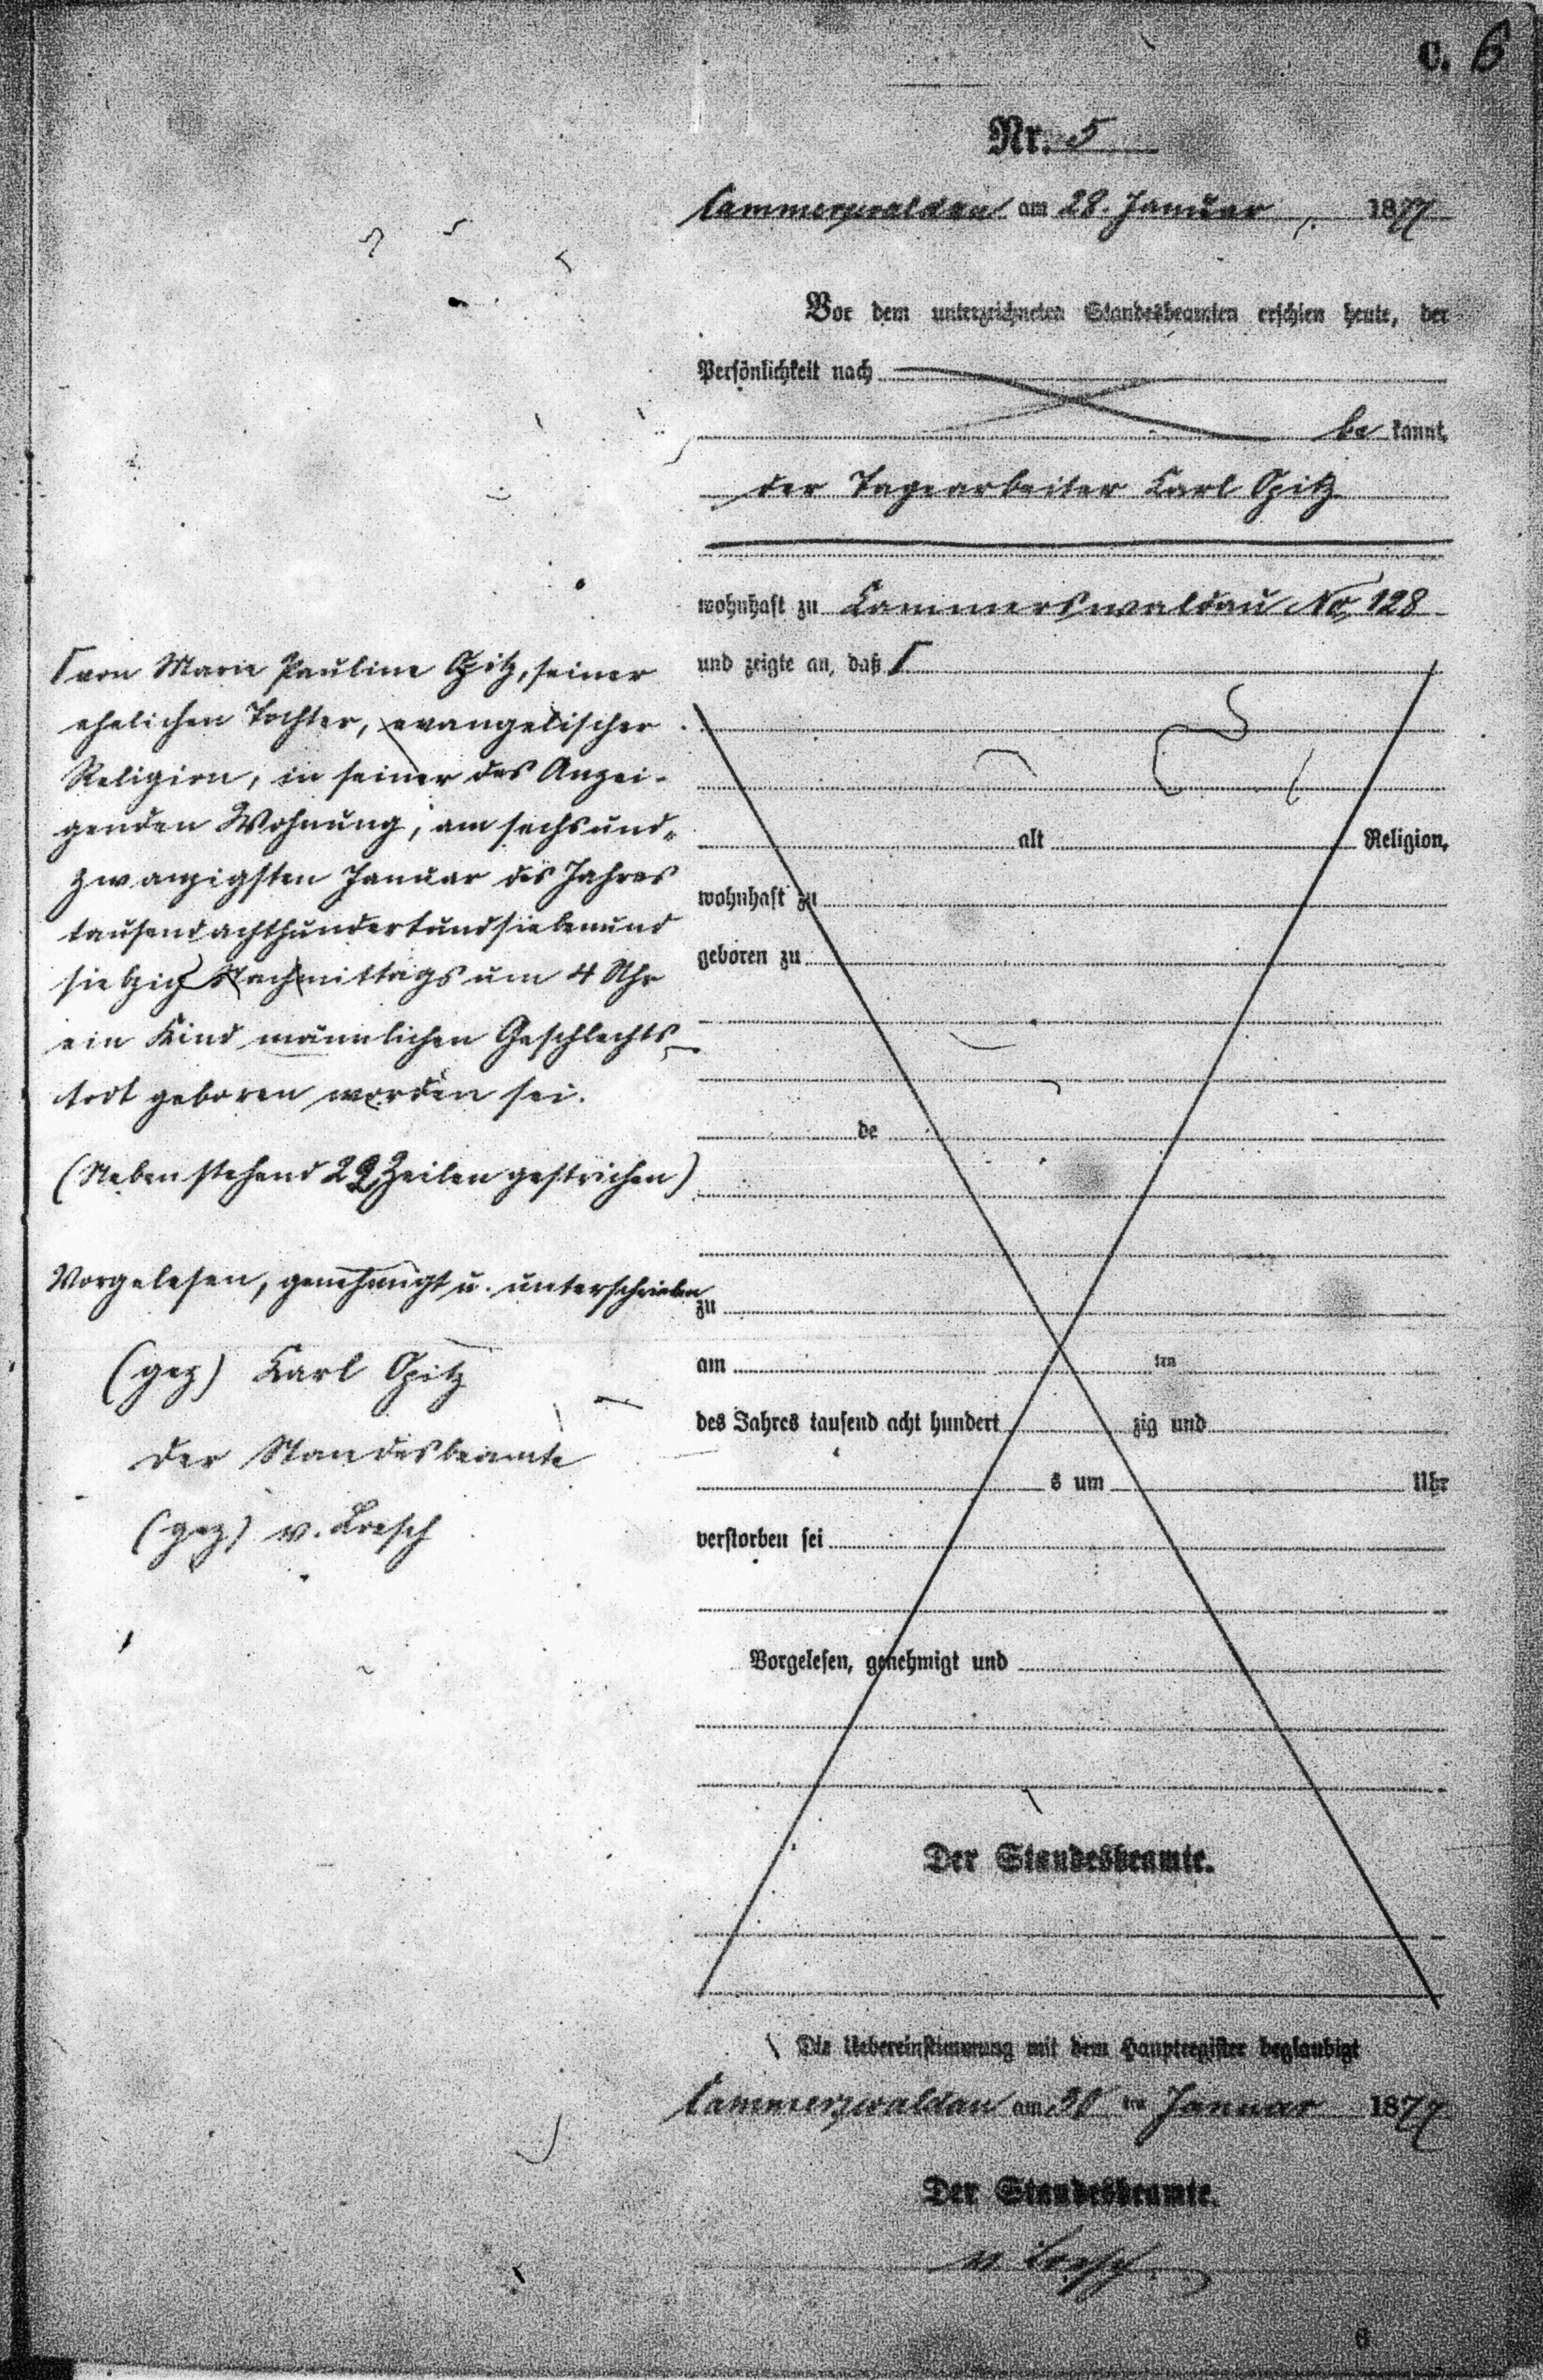 C. 6
Nr. 5
Cammerswaldau am 28. Januar 1877
Vor dem unterzeichneten Standesbeamten erschien heute, der
Persönlichkeit nach
be kannt,
der Tagearbeiter Carl Opitz
wohnhaft zu Cammerswaldau No. 128
und zeigte an, daß Γ
Γ von Marie Pauline Opitz, seiner
ehelichen Tochter, evangelischer
Religion, in seiner des Anzei-
genden Wohnung, am sechsund-
zwanzigsten Januar des Jahres
tausendachthundertundsiebenund
siebzig Nachmittags um 4 Uhr
ein Kind männlichen Geschlechts
todt geboren worden sei.
(Nebenstehend 22 Zeilen gestrichen)
Vorgelesen, genehmigt u. unterschrieben
(gez) Carl Opitz
Der Standesbeamte
(gez) v. Loesch
alt Religion,
wohnhaft zu
geboren zu
de
zu
am ten
des Jahres tausend acht hundert zig und
s um Uhr
verstorben sei
Vorgelesen, genehmigt und
Der Standesbeamte.
Die Uebereinstimmung mit dem Hauptregister beglaubigt
Cammerswaldau am ten Januar 1877
Der Standesbeamte.
v. Loesch
6